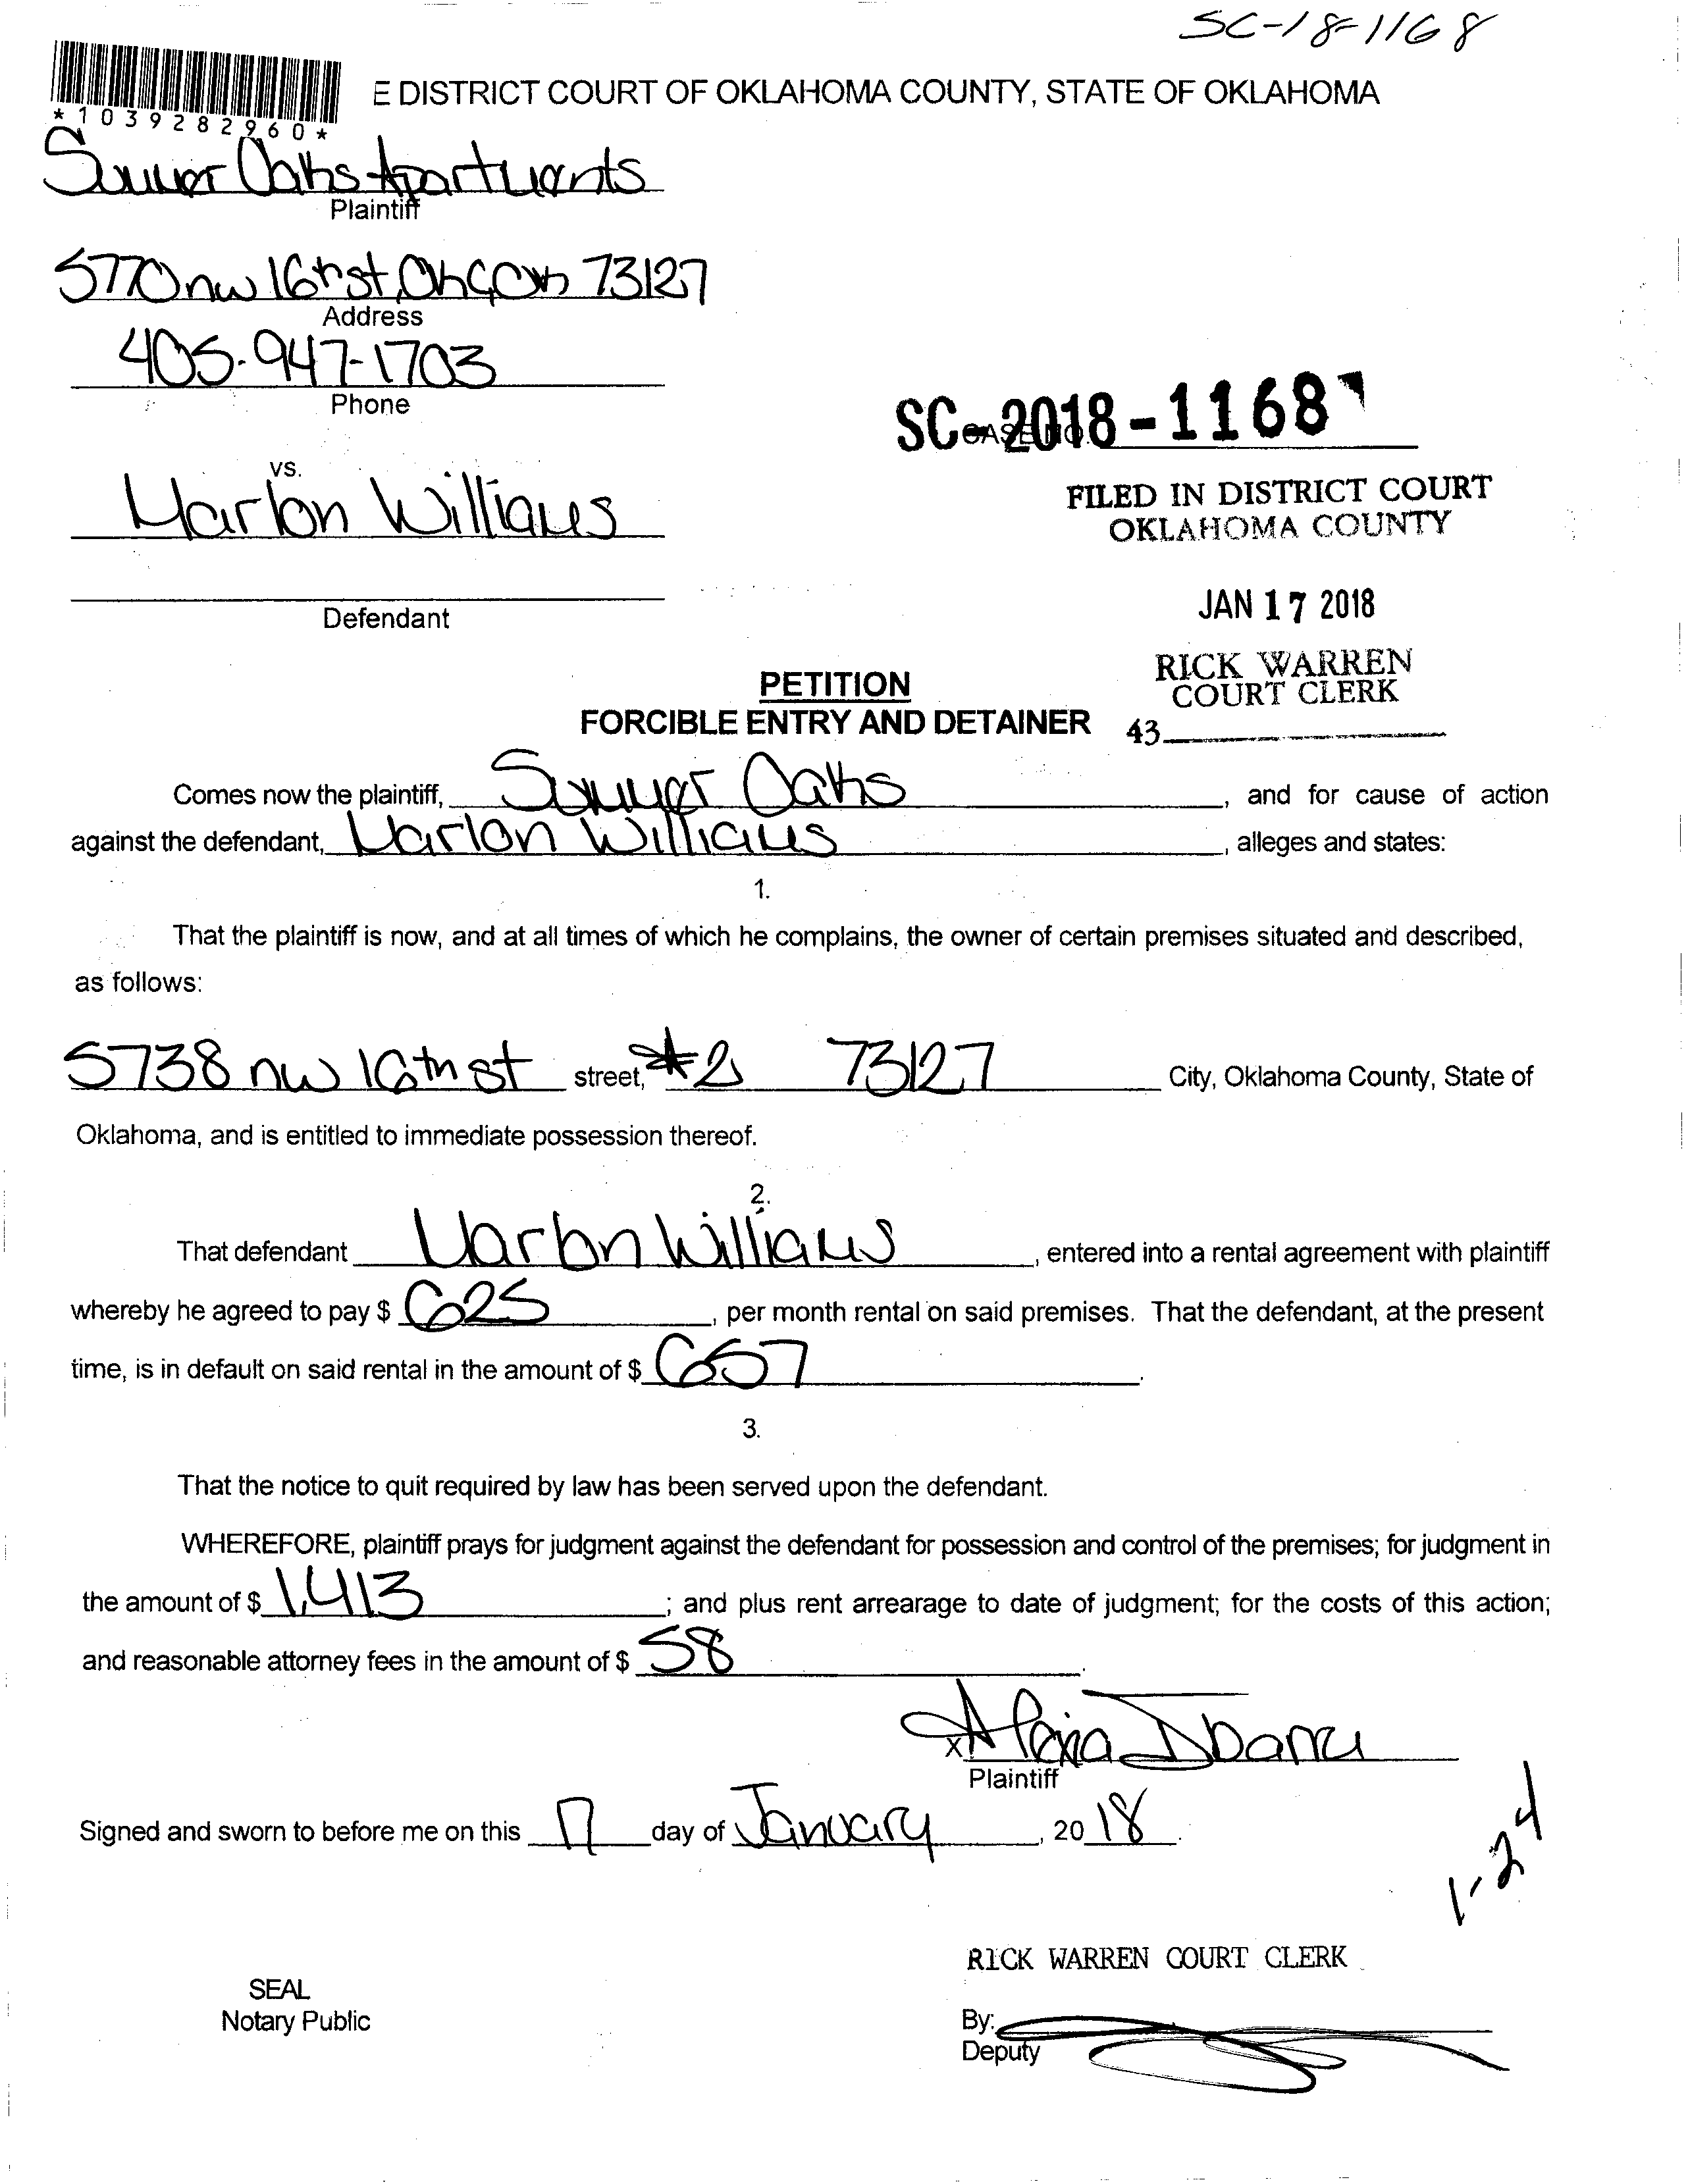 SC-18-1168
E DISTRICT COURT OF OKLAHOMA COUNTY, STATE OF OKLAHOMA
*1039282960*
Summer Oaks Apartments
Plaintiff
5770 nw 16th st, OKC OK 73127
Address
405-947-1703
Phone
SC-2018-1168
CASE NO.
vs.
Marlon Williams
FILED IN DISTRICT COURT
OKLAHOMA COUNTY
Defendant
JAN 17 2018
RICK WARREN
COURT CLERK
43
PETITION
FORCIBLE ENTRY AND DETAINER
Comes now the plaintiff, Summer Oaks, and for cause of action
against the defendant, Marlon Williams, alleges and states:
1.
That the plaintiff is now, and at all times of which he complains, the owner of certain premises situated and described,
as follows:
5738 nw 16th st street, #2 73127 City, Oklahoma County, State of
Oklahoma, and is entitled to immediate possession thereof.
2.
That defendant Marlon Williams, entered into a rental agreement with plaintiff
whereby he agreed to pay $ 625, per month rental on said premises. That the defendant, at the present
time, is in default on said rental in the amount of $ 657.
3.
That the notice to quit required by law has been served upon the defendant.
WHEREFORE, plaintiff prays for judgment against the defendant for possession and control of the premises; for judgment in
the amount of $ 1,413; and plus rent arrearage to date of judgment; for the costs of this action;
and reasonable attorney fees in the amount of $ 58.
x Ibarra
Plaintiff
Signed and sworn to before me on this 17 day of January, 2018.
1-24
RICK WARREN COURT CLERK
SEAL
Notary Public
By:
Deputy